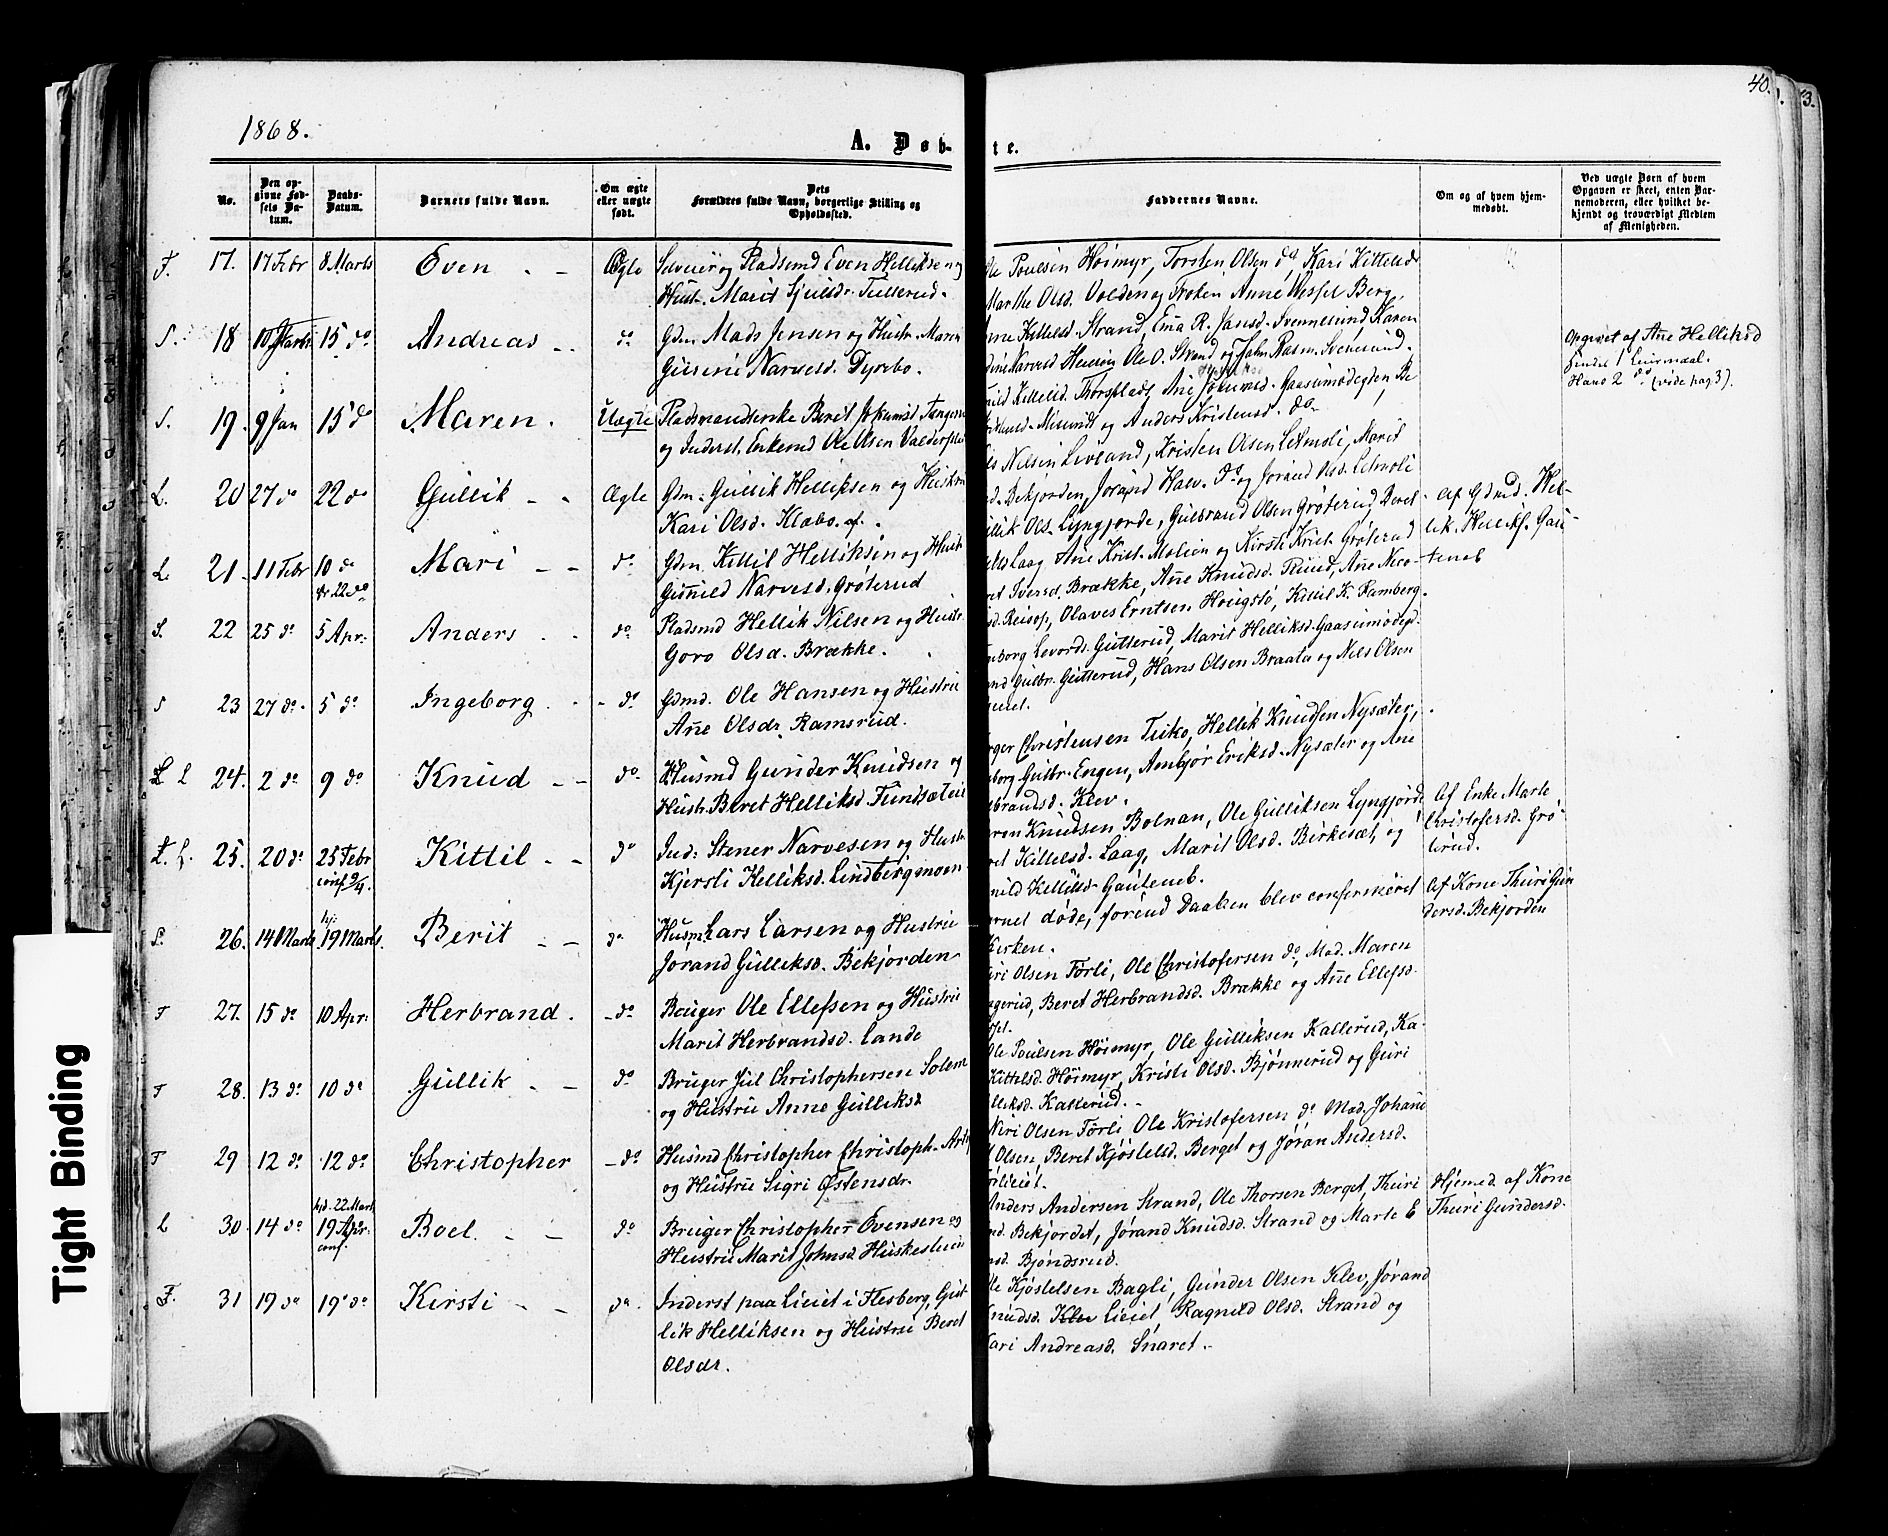 40.
1868.
A. Døb-
te.
No.
Den op-
givne Fød-
sels Da-
tum.
Daabs-
Datum.
Barnets fulde Navn.
Om ægte
eller uægte
født.
Dets
Forældres fulde Navn, borgerlige Stilling og
Opholdssted.
Faddernes Navne.
Om og af hvem hjem-
medøbt.
Ved uægte Børn af hvem
Opgaven er skeet, enten Bar-
nemoderen, eller hvilket be-
kjendt og troværdigt Medlem
af Menigheden.
F. 17. 17 Febr 8 Marts Even Ægte Selveier og Pladsmd Even Helliksen og
Hustr. Marit Sjulsdr Tullerud.
Poulsen Høimyr, Torsten Olsen do, Kari Kittelsd
Marthe Olsd. Volden og Frøken Anne Wessel Berg.
S. 18 10 Marts 15 do Andreas do Gdm. Mads Jensen og Hustr. Maren
Gurine Narvesd. Dyrebo.
Kittelsd. Strand, Ema R. Jansd. Svennesund Karen
Narvesd Ole O. Strand og John Rasm. Svenesund.
Opgivet af Ane Helliksd
Hans 2 do (vide pag 3).
S. 19. 9 Jan 15 do Maren. Uægte Pladsmandsenke Berit Johansd Tangen
og Inderst, Enkemd Ole Olsen
Kittelsd. Thorsplads, Ane Gaasumodegden Be
Misundt og Anders Kristensd. do
L. 20 27 do 22 do Gullik Ægte Gdm. Gullik Helliksen og Hustru
Kari Olsd. Klabo. af.
Nilsen Levland, Kristen Olsen Letmoli, Marit
Bekjorden, Jorand Halv. do og Jorand Olsd. Letmoli
Af Gdmd. Hel-
lik Helliks. Gau-
teneb
L. 21. 11 Febr 10 do
22 do Mari do. Gdm. Kittil Helliksen og Hustr
Gunild Narvesd. Grøterud
Ols. Lyngjorde, Gulbrand Olsen Grøterud, Beret
Laag Ane Krist. Molien og Kirsti Krist. Grøterud
S. 22 25 do 5 Apr: Anders do Pladsmd Hellik Nilsen og Hustr
Goro Olsd. Brække.
Iversd. Brække, Ane Knudsd. Ruud, Ane Nico-
Olaves Erntsen Hougstø, Kittil K. Ramberg.
S 23 27 do 5 do Ingeborg. do Gdmd. Ole Hansen og Hustru
Ane Olsdr Ramsrud.
Levords. Gutterud, Marit Helliksd. Gaasumodegd.
Gulbr. Gutterud, Hans Olsen Braata og Nils Olsen
L L 24. 2 do 9 do Knud do. Husmd Gunder Knudsen og
Hustr. Beret Helliksd. Fundsæteie
Christensen Teiko, Hellik Knudsen Nysæter,
Gulbr. Engen, Ambjør Eriksd. Nysæter og Ane
Klev.
L. L. 25. 20 do 25 Febr
conf. 9/4. Kittil do Ind: Stener Narvesen og Hustr.
Kjersti Helliksd. Lindbergmoen
Knudsen Bolnan, Ole Gulliksen Lyngjorde
Kittelsd. Laag, Marit Olsd. Birkesæt, og
Kittilsd. Gauteneb.
døde, forend Daaben blev confirmeret
Kirken.
Af Enke Marte
Christofersd. Grø-
terud.
S. 26. 14 Marts hj:
19 Marts. Berit do Husm. Lars Larsen og Hustrue
Jorand Gulliksd. Bekjorden
Af Kone Thuri Gun
dersd. Bekjorden
F 27. 15 do 10 Apr: Herbrand. do Bruger Ole Ellefsen og Hustru
Marit Herbrandsd. Lande
Olsen Førli, Ole Christofersen do, Mad. Maren
Beret Herbrandsd. Brække og Ane Ellefsd.
F 28. 13 do 10 do Gullik do Bruger Jul Christophersen Solem
og Hustru Anne Gulliksd
Poulsen Høimyr, Ole Gulliksen Kallerud, Ka-
Kittelsd. Høimyr, Kristi Olsd. Bjønnerud og Guri
Kallerud.
F 29 12 do 12 do Christopher do Husmd Christopher Christoph.
og Hustru Sigri Østensdr.
Olsen Førli Ole Kristofersen do Mad. Johane
Olsen, Beret Kjøstelsd. Berget og Jøran Andersd.
L 30. 14 do hjd. 22 Marts
19 Apr:
conf. Boel. do Bruger Christopher Evensen og
Hustru Marit Johnsd Huskesleien
Anders Andersen Strand, Ole Thorsen Berget, Thuri
Bekjordet, Jørand Knudsd. Strand og Marte E
Bjøndsrud.
Hjemd. af Kone
Thuri Gundersd.
F. 31 19 do 19 do Kirsti do. Inderst paa Lieiet i Flesberg, Gul-
lik Helliksen og Hustru Beret
Olsdr.
Kjøstelsen Bagli, Gunder Olsen Klev, Jørand
Klev Lieiet, Ragnild Olsd. Strand og
Kari Andreasd. Snaret.
Tight Binding